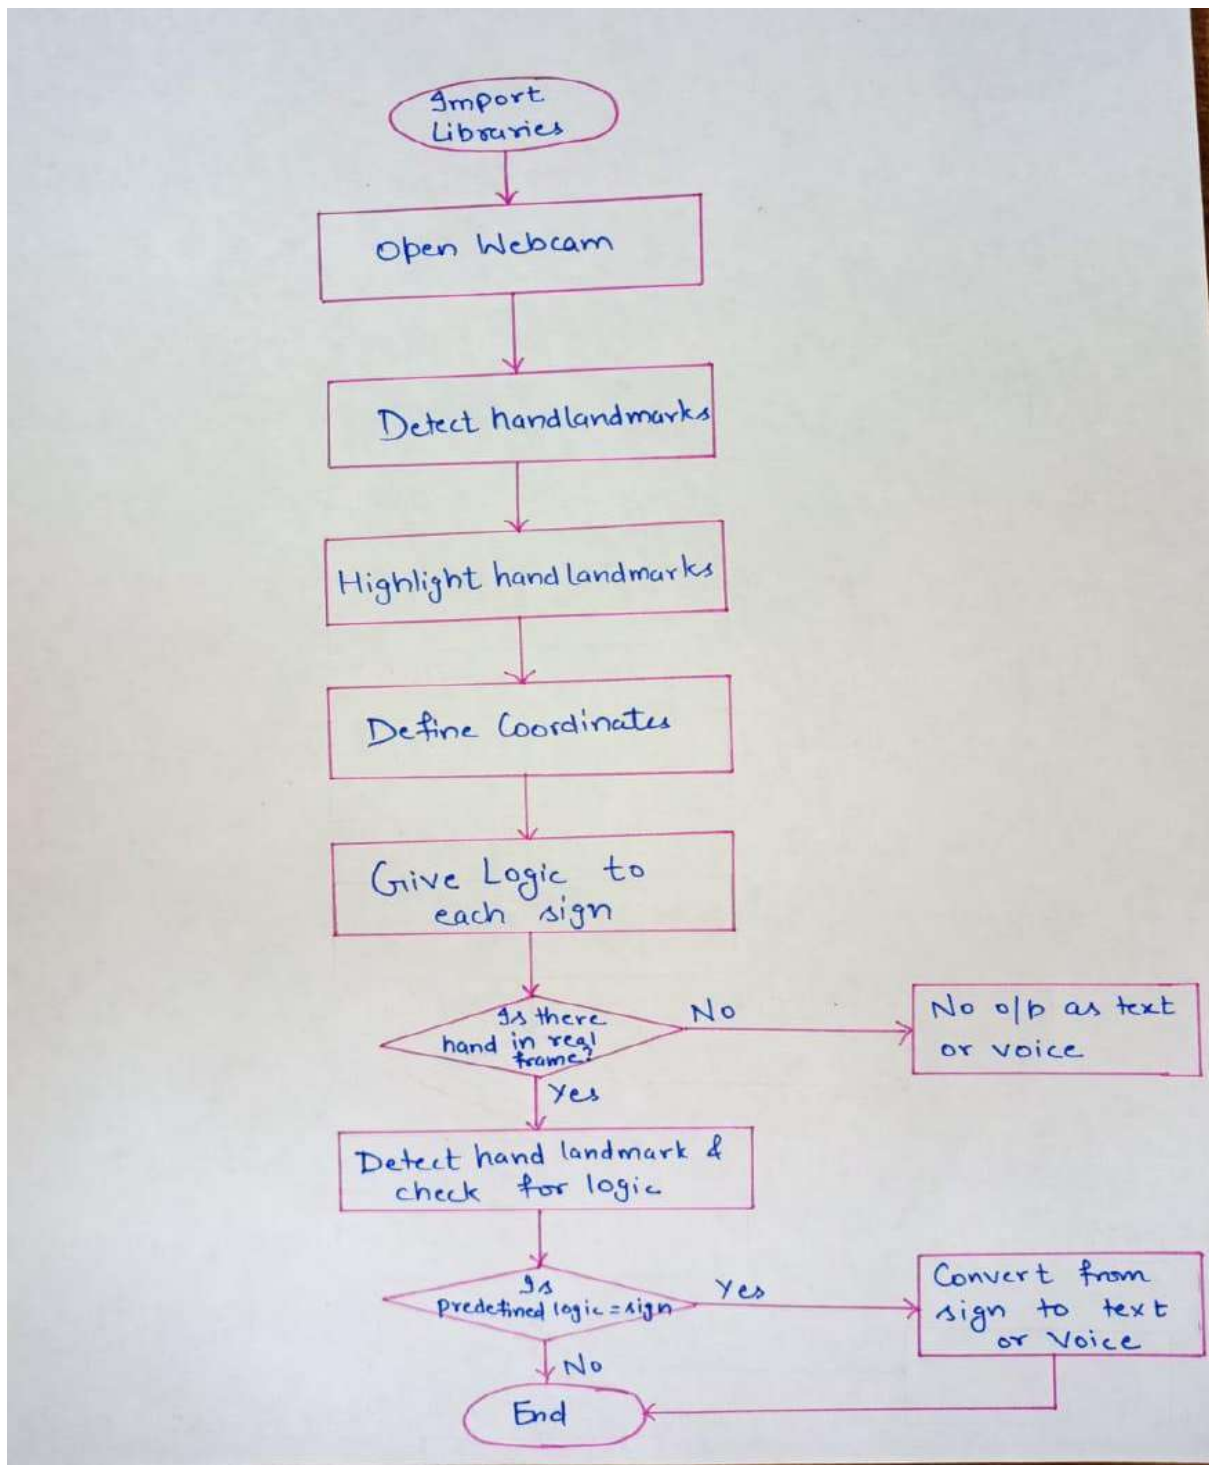 Import
Libraries
Open Webcam
Detect handlandmarks
Highlight hand landmarks
Define Coordinates
Give Logic to
each sign
Is there
hand in real
frame?
No
No o/p as text
or voice
Yes
Detect hand landmark &
check for logic
Is
predefined logic = sign
Yes
Convert from
sign to text
or Voice
No
End